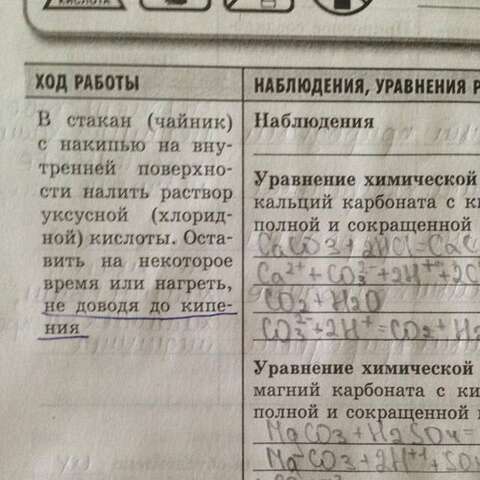 КИСЛОТА
ХОД РАБОТЫ
НАБЛЮДЕНИЯ, УРАВНЕНИЯ Р
В стакан (чайник)
с накипью на вну-
тренней поверхно-
сти налить раствор
уксусной (хлорид-
ной) кислоты. Оста-
вить на некоторое
время или нагреть,
не доводя до кипе-
ния
Наблюдения
Уравнение химической
кальций карбоната с ки
полной и сокращенной
CaCO3+2HCl=CaC
Ca²⁺+CO3²⁻+2H⁺+2C
CO2+H2O
CO3²⁻+2H⁺=CO2+H2
Уравнение химической
магний карбоната с ки
полной и сокращенной и
MgCO3+H2SO4=
MgCO3+2H⁺¹+SO4